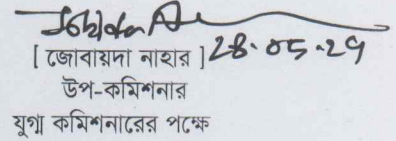 [ জোবায়দা নাহার ] 28.05.29
উপ-কমিশনার
যুগ্ম কমিশনারের পক্ষে